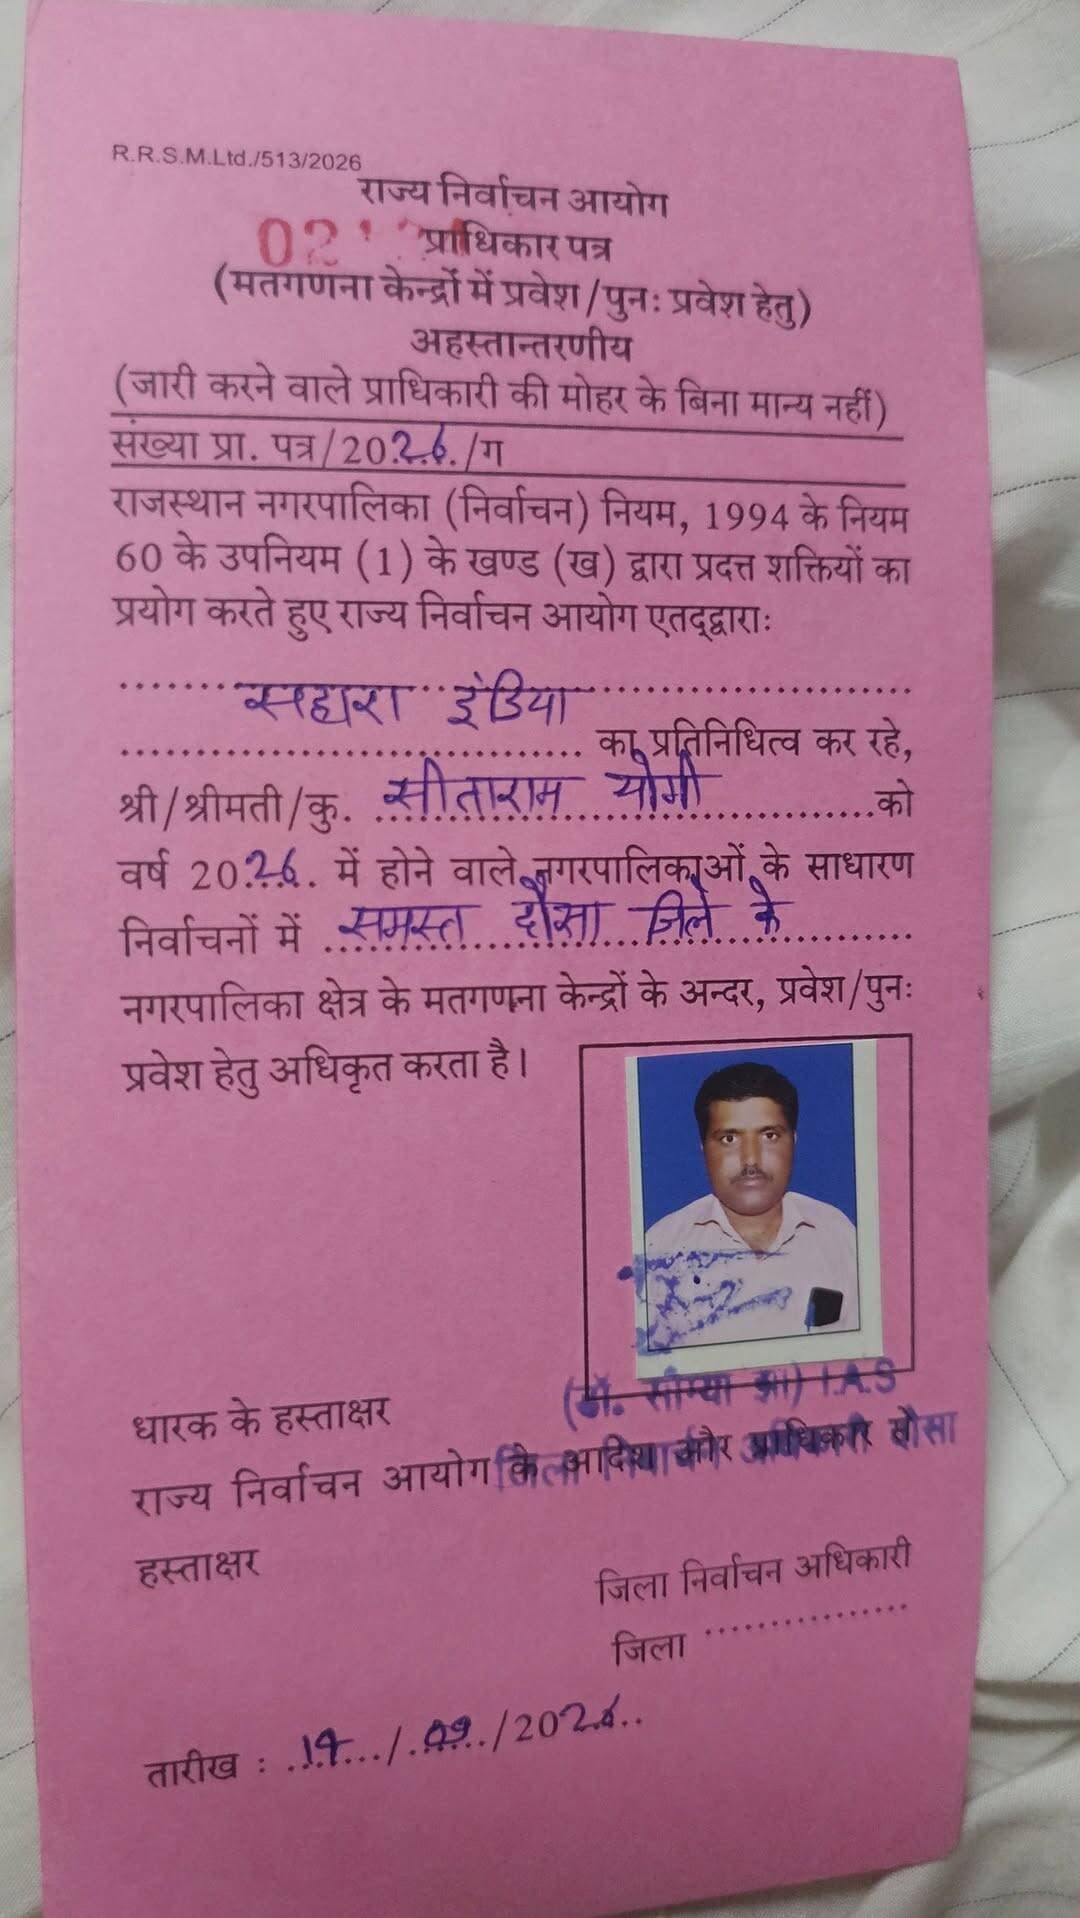 R.R.S.M.Ltd./513/2026
राज्य निर्वाचन आयोग
प्राधिकार पत्र
(मतगणना केन्द्रों में प्रवेश/पुनः प्रवेश हेतु)
अहस्तान्तरणीय
(जारी करने वाले प्राधिकारी की मोहर के बिना मान्य नहीं)
संख्या प्रा. पत्र/2026./ग
राजस्थान नगरपालिका (निर्वाचन) नियम, 1994 के नियम
60 के उपनियम (1) के खण्ड (ख) द्वारा प्रदत्त शक्तियों का
प्रयोग करते हुए राज्य निर्वाचन आयोग एतद्द्वाराः
सहारा इंडिया
का प्रतिनिधित्व कर रहे,
श्री/श्रीमती/कु. सीताराम योगी को
वर्ष 2026. में होने वाले नगरपालिकाओं के साधारण
निर्वाचनों में समस्त दौसा जिले के
नगरपालिका क्षेत्र के मतगणना केन्द्रों के अन्दर, प्रवेश/पुनः
प्रवेश हेतु अधिकृत करता है।
(डॉ. सौम्या झा) I.A.S
धारक के हस्ताक्षर
जिला निर्वाचन अधिकारी दौसा
राज्य निर्वाचन आयोग के आदेश और प्राधिकार से
हस्ताक्षर
जिला निर्वाचन अधिकारी
जिला ................
तारीख : /09/2026..